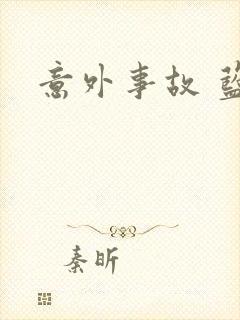 意外事故 蓝
秦昕